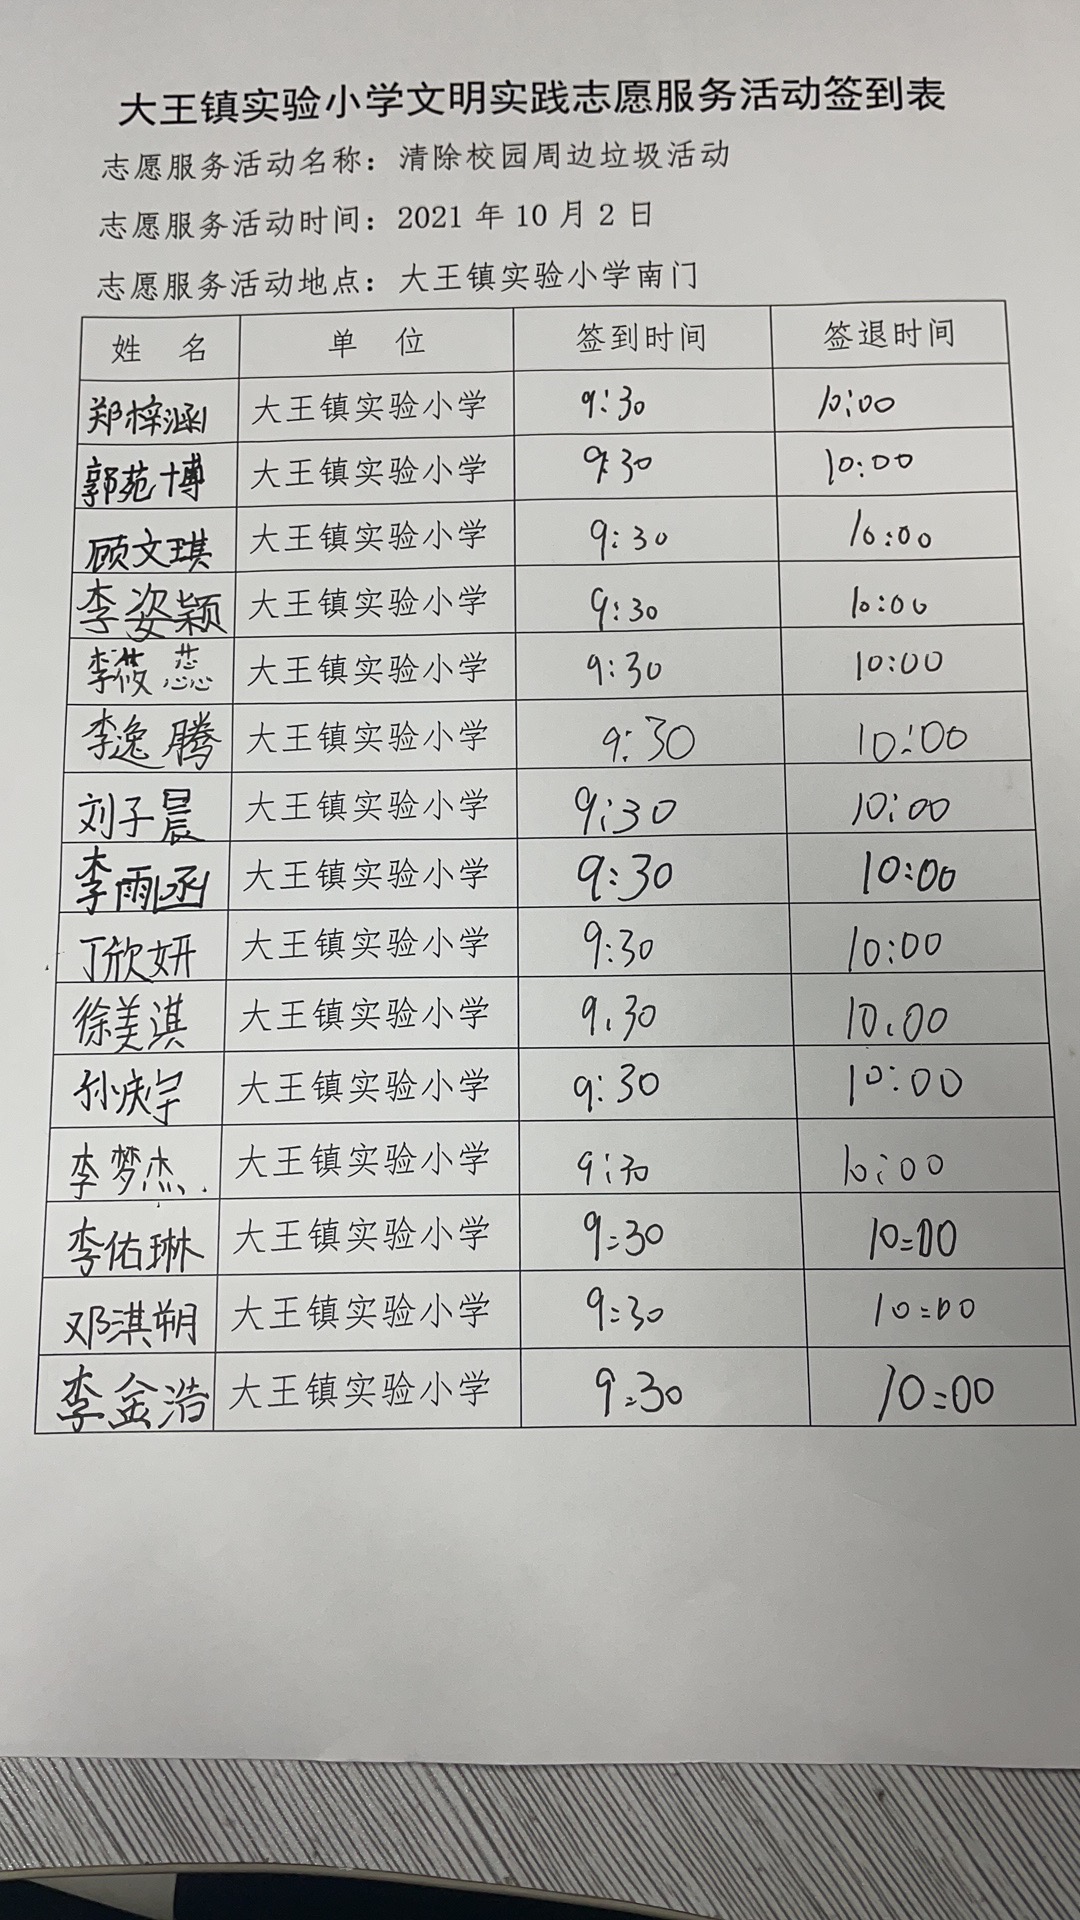 大王镇实验小学文明实践志愿服务活动签到表
志愿服务活动名称：清除校园周边垃圾活动
志愿服务活动时间：2021 年 10 月 2 日
志愿服务活动地点：大王镇实验小学南门
姓 名 单 位 签到时间 签退时间
郑梓涵 大王镇实验小学 9:30 10:00
郭苑博 大王镇实验小学 9:30 10:00
顾文琪 大王镇实验小学 9:30 10:00
李姿颖 大王镇实验小学 9:30 10:00
李筱蕊 大王镇实验小学 9:30 10:00
李逸腾 大王镇实验小学 9:30 10:00
刘子晨 大王镇实验小学 9:30 10:00
李雨函 大王镇实验小学 9:30 10:00
丁欣妍 大王镇实验小学 9:30 10:00
徐美淇 大王镇实验小学 9:30 10:00
孙庆宇 大王镇实验小学 9:30 10:00
李梦杰 大王镇实验小学 9:30 10:00
李佑琳 大王镇实验小学 9:30 10:00
邓淇朔 大王镇实验小学 9:30 10:00
李金浩 大王镇实验小学 9:30 10:00